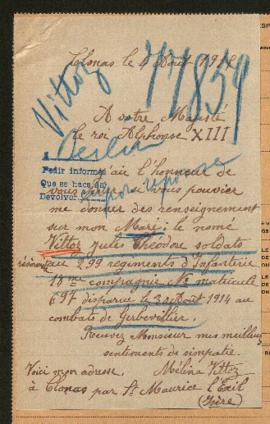 Clonas le 4 Août
Vittoz
77859
A votre Majesté
le roi Alphonse XIII
Berlin
Pedir informes
Que se hace
Devolver
j'ai l'honneur de
vous si vous pouvier
me donner des renseignement
sur mon Mari; le nomé
Vittoz Jules Théodore soldat
réserviste au 99 regiments d'Infanterie
18me compagnie No matricule
697 disparue le 2 Août 1914 au
combats de Gerbeviller.
Recevez Monsieur mes meilleurs
sentiments de simpatie.
Voici mon adresse, Mélina Vittoz
à Clonas par St Maurice l'Exil
(Isère)